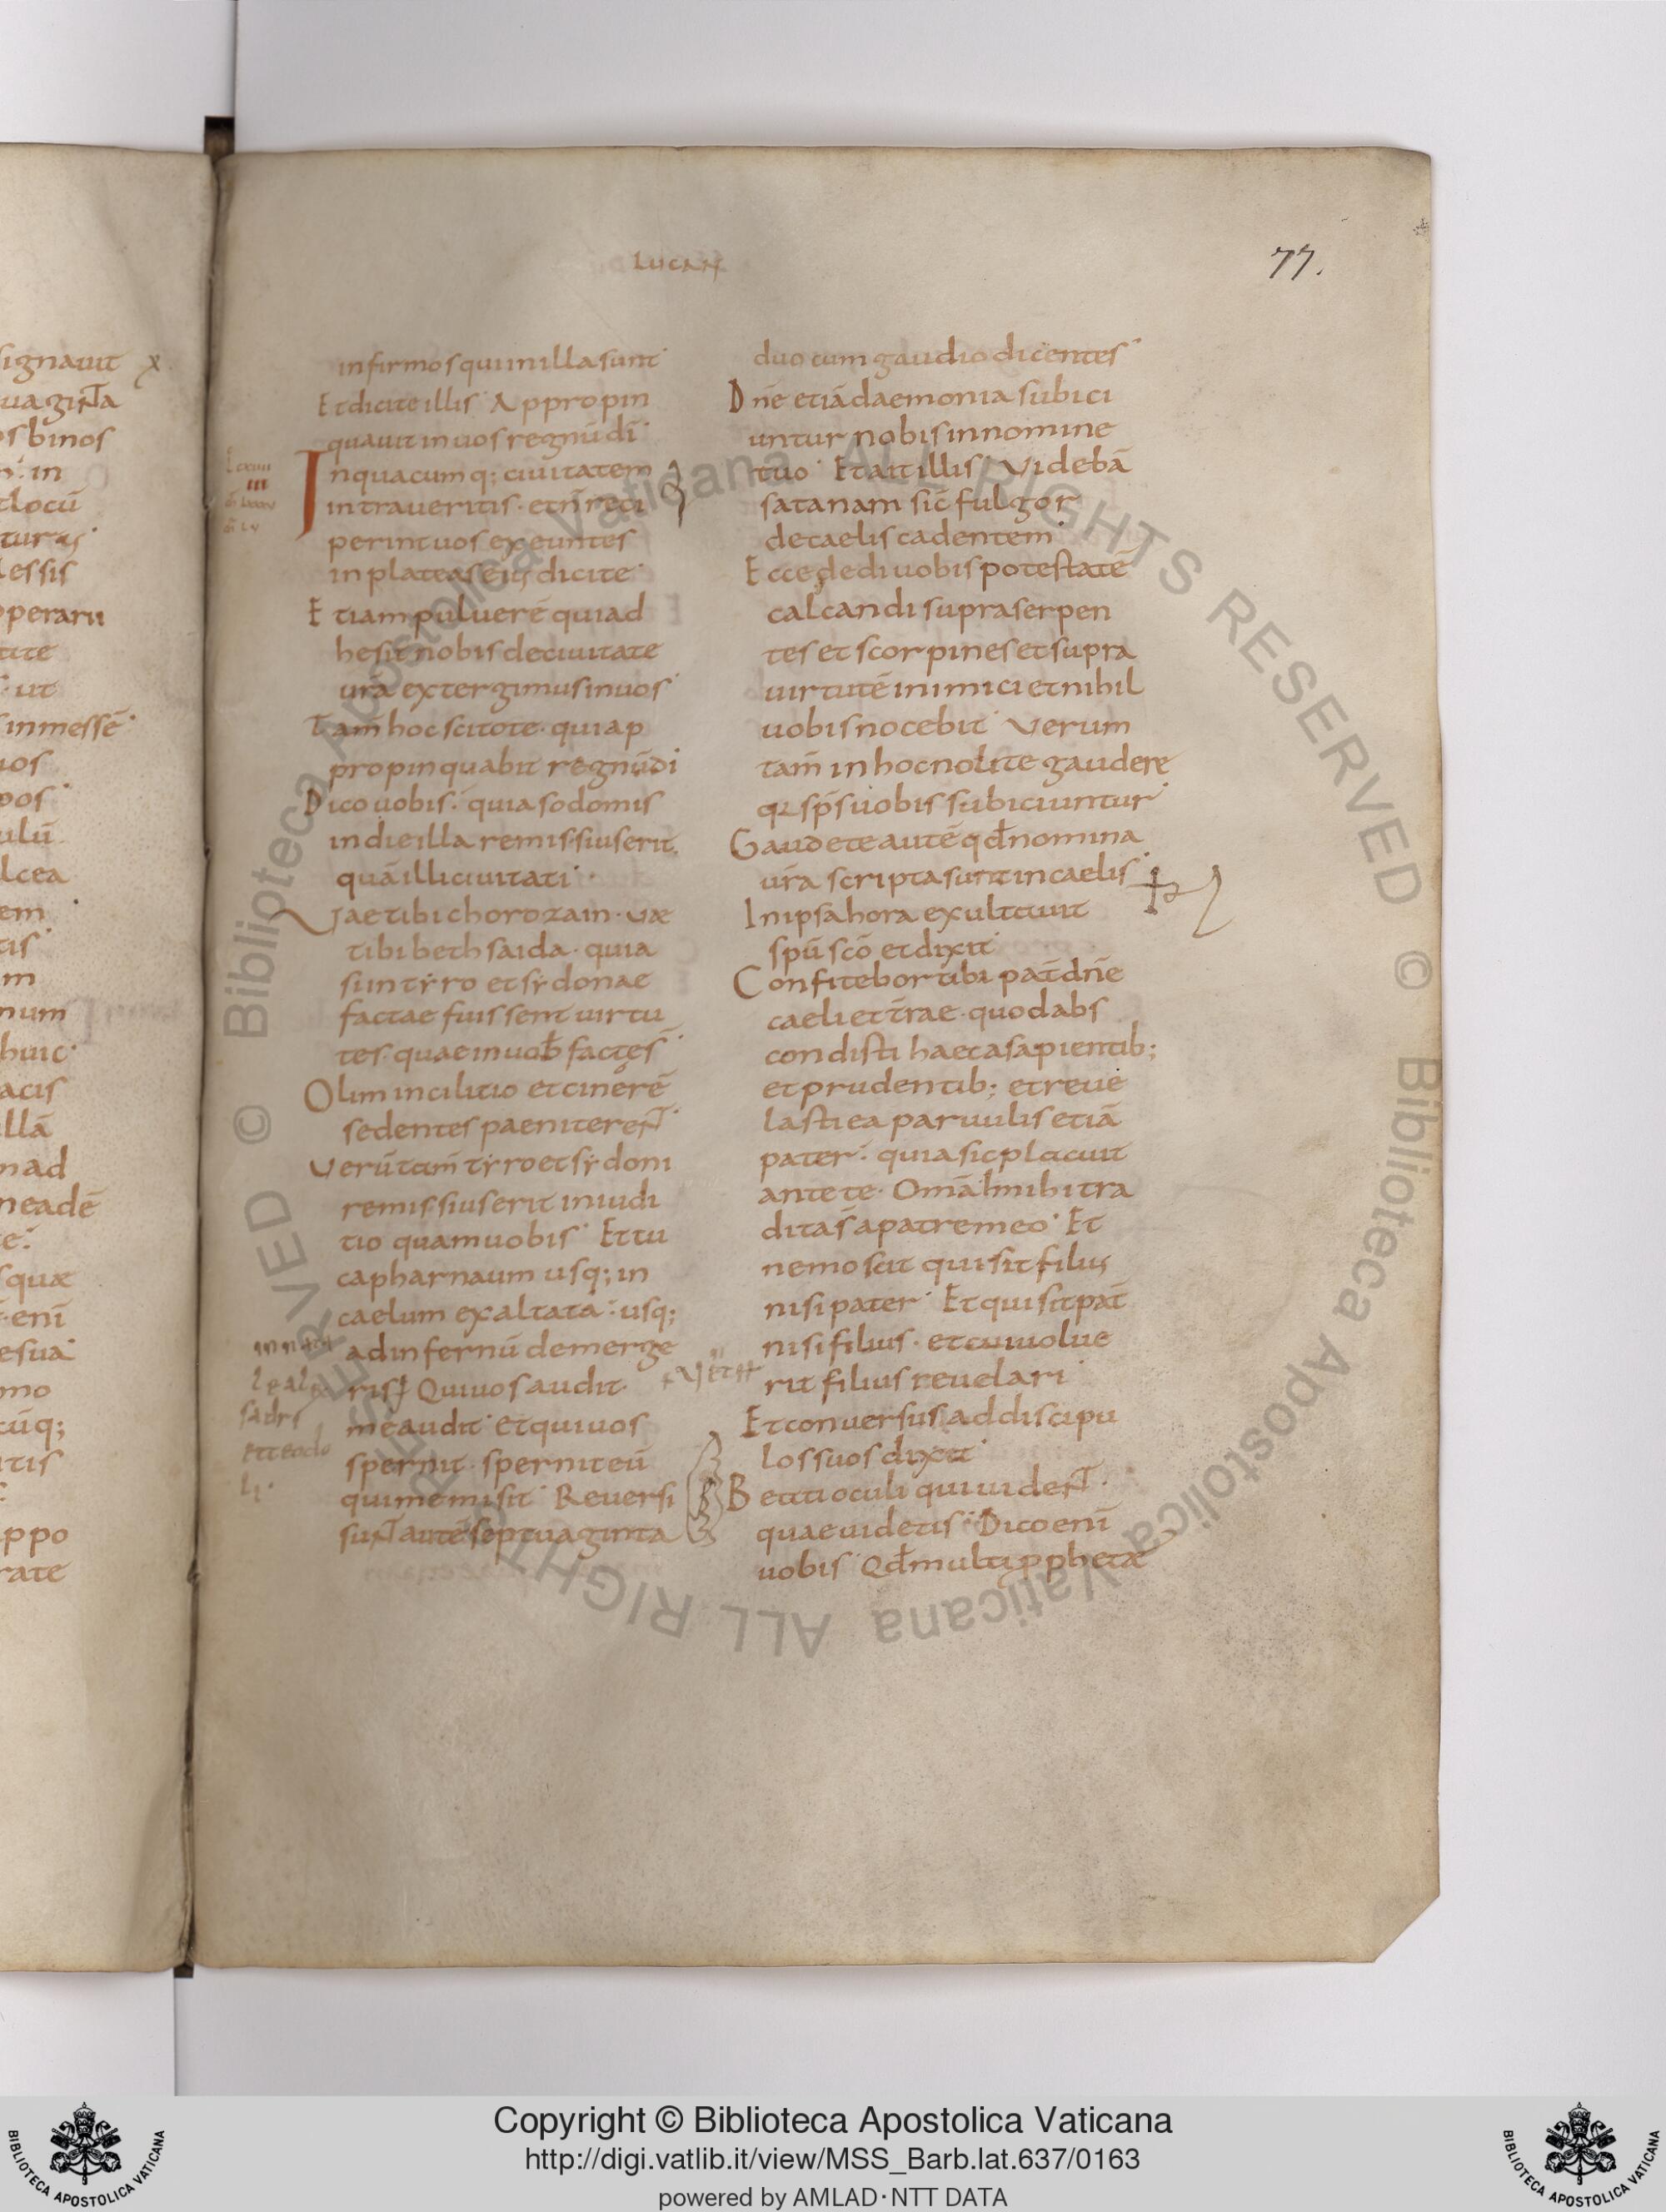 LUCAN
77.
signavit x
uaginta
os binos
in
tlocū
turus
essis
operarii
tite
ut
in messē
uos
pos
ulū
lcea
em
tis
m
num
huic
acis
llā
nad
neadē
e
squae
enī
esua
mo
cūq;
itis
ppo
rate
infirmos qui in illa sunt
Et dicite illis Appropin
quavit in vos regnū dī
In quacumq; civitatem
intraveritis · et n̄ reci
perint vos exeuntes
in plateas eius dicite
Etiam pulverē qui ad
hesit nobis de civitate
vrā extergimus in vos
Tam̄ hoc scitote · quia p
propinquabit regnū dī
Dico vobis · quia sodomis
in die illa remissius erit
quā illi civitati
Vae tibi chorozain · vae
tibi bethsaida · quia
si in tyro et sydonae
factae fuissent virtu
tes quae in vob̄ factes̄
Olim in cilitio et cinerē
sedentes paeniterent
Verūtam̄ tyro et sydoni
remissius erit in iudi
tio quam vobis Et tu
capharnaum usq; in
caelum exaltata · usq;
ad infernū demerge
ris Qui vos audit
me audit et qui vos
spernit · spernit eū
qui me misit Reversi
sunt autē septuaginta
duo cum gaudio dicentes
Dn̄e etiā daemonia subici
untur nobis in nomine
tuo Et ait illis Videbā
satanam sic̄ fulgor
de caelis cadentem
Ecce dedi vobis potestatē
calcandi supra serpen
tes et scorpines et supra
virtutē inimici et nihil
vobis nocebit Verum
tam̄ in hoc nolite gaudere
q2 sp̄s vobis subiciuntur
Gaudete autē qd̄ nomina
vr̄a scripta sunt in caelis
In ipsa hora exultavit
spū scō et dixit
Confitebor tibi pat̄ dn̄e
caeli et t̄rae · quod abs
condisti haec a sapientib;
et prudentib; et reve
lasti ea parvulis etiā
pater · quia sic placuit
ante te · Omā mihi tra
dita s̄ a patre meo Et
nemo scit qui sit filius
nisi pater Et qui sit pat̄
nisi filius · et cui volue
rit filius revelari
Et conversus ad discipu
los suos dixit
Beati oculi qui vident
quae videtis Dico enī
vobis Qd̄ multi p̱phetae
Copyright © Biblioteca Apostolica Vaticana
http://digi.vatlib.it/view/MSS_Barb.lat.637/0163
powered by AMLAD·NTT DATA
BIBLIOTECA APOSTOLICA VATICANA
BIBLIOTECA APOSTOLICA VATICANA
© Biblioteca Apostolica Vaticana ALL RIGHTS RESERVED
© Biblioteca Apostolica Vaticana ALL RIGHTS RESERVED